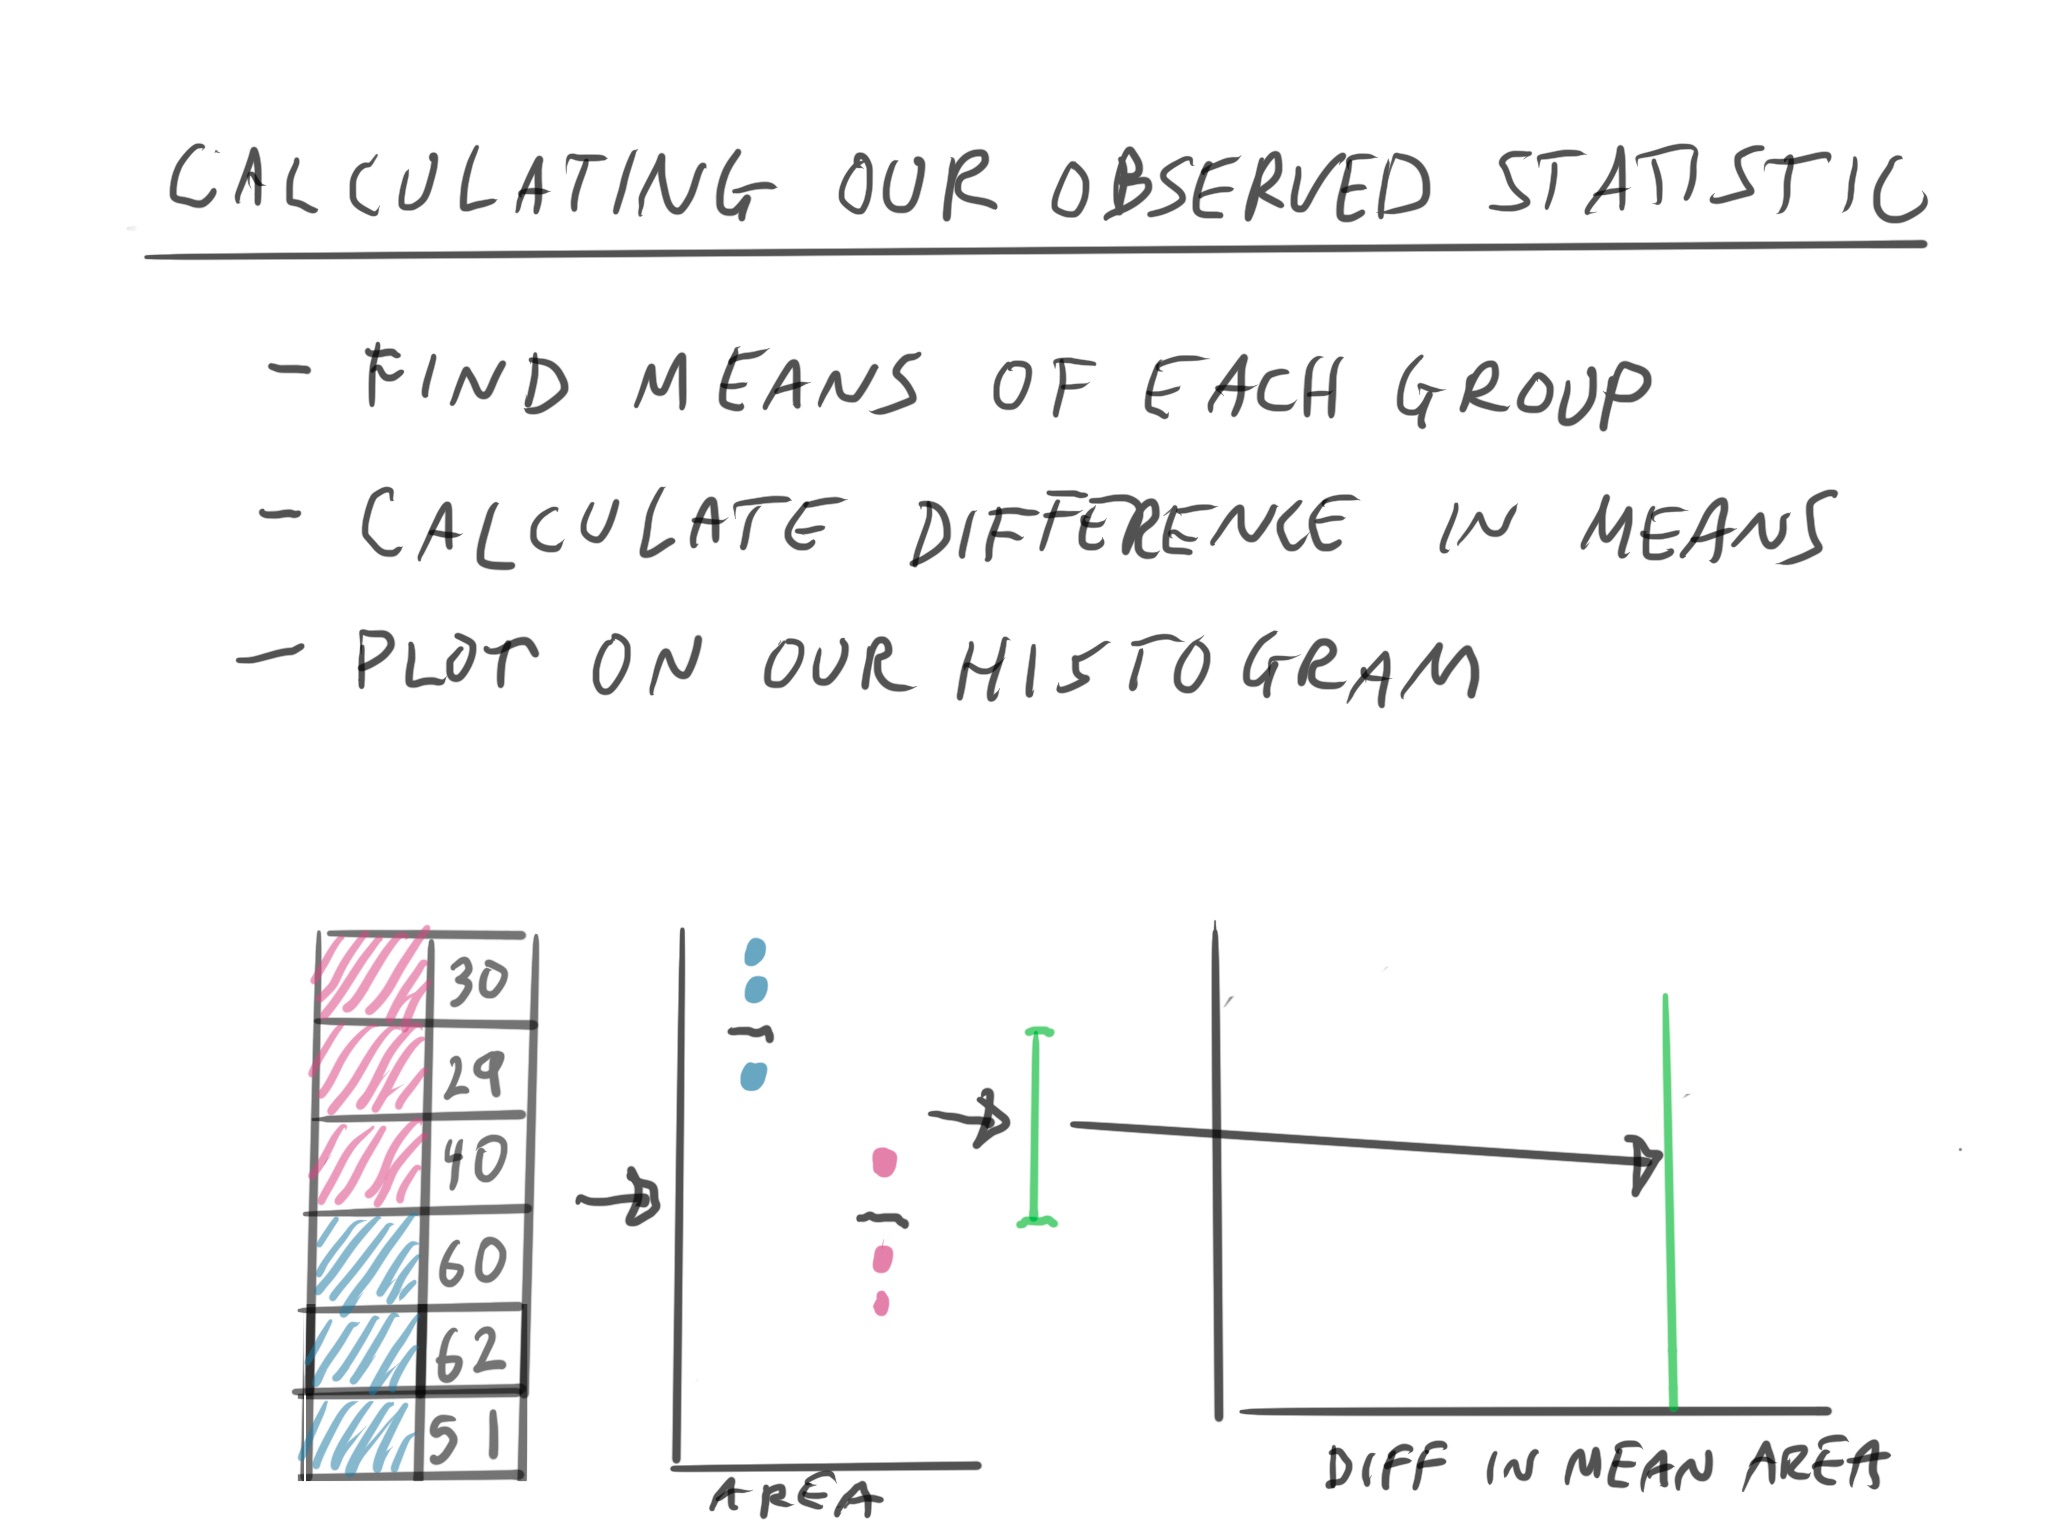 CALCULATING OUR OBSERVED STATISTIC
- FIND MEANS OF EACH GROUP
- CALCULATE DIFFERENCE IN MEANS
- PLOT ON OUR HISTOGRAM
30
29
40
60
62
51
AREA
DIFF IN MEAN AREA